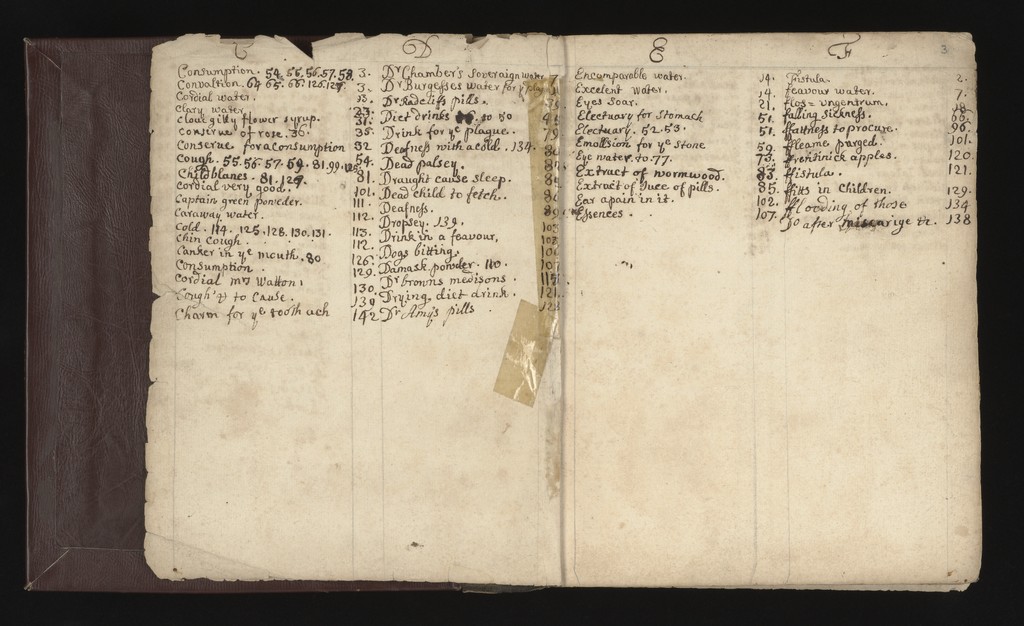 C
Consumption. 54. 55. 56. 57. 58. 3.
Convaltion. 64 65. 66. 126. 127. 3.
Cordial water. 13.
Clary water 23.
Clove gilly flower syrup. 31.
Conserve of rose. 36. 35.
Conserve for a Consumption 32
Cough. 55. 56. 57. 59. 81. 99. 54.
Childblanes. 81. 127. 81.
Cordial very good. 101.
Captain green powder. 111.
Caraway water. 112.
Cold. 114. 125. 128. 130. 131. 113.
Chin Cough. 112.
Canker in ye mouth. 80 126.
Consumption. 129.
Cordial mrs Watton. 130.
Cough to Cause. 139
Charm for ye tooth ach 142
D
Dr Chamber's Soveraign water 7.
Dr Burgesses water for ye plague
Dr Radclifs pills.
Diet drinks 50
Drink for ye plague. 79
Deafness with a cold. 134.
Dead palsey.
Draught cause sleep.
Dead child to fetch.
Deafness.
Dropsey. 139.
Drink in a feavour.
Dogs bitting.
Damask powder. 110. 107
Dr browns medisons. 115
Drying, diet drink. 121
Dr Amy's pills 123
E
Encomparable water. 14.
Excelent water. 14.
Eyes Soar. 21.
Electuary for Stomack 51.
Electuary. 52. 53. 51.
Emollsion for ye Stone 59.
Eye water to. 77. 73.
Extract of wormwood. 83.
Extract of Juce of pills. 85.
Ear a pain in it. 102.
Essences. 107.
F
3
Fistula. 2.
feavour water. 7.
flos = ungentrum. 18
falling Sickness. 66.
ffattness to procure. 96.
ffleame purged. 101.
apples. 120.
ffistula. 121.
ffitts in Children. 129.
fflooding of those 134
go after miscarige &c. 138